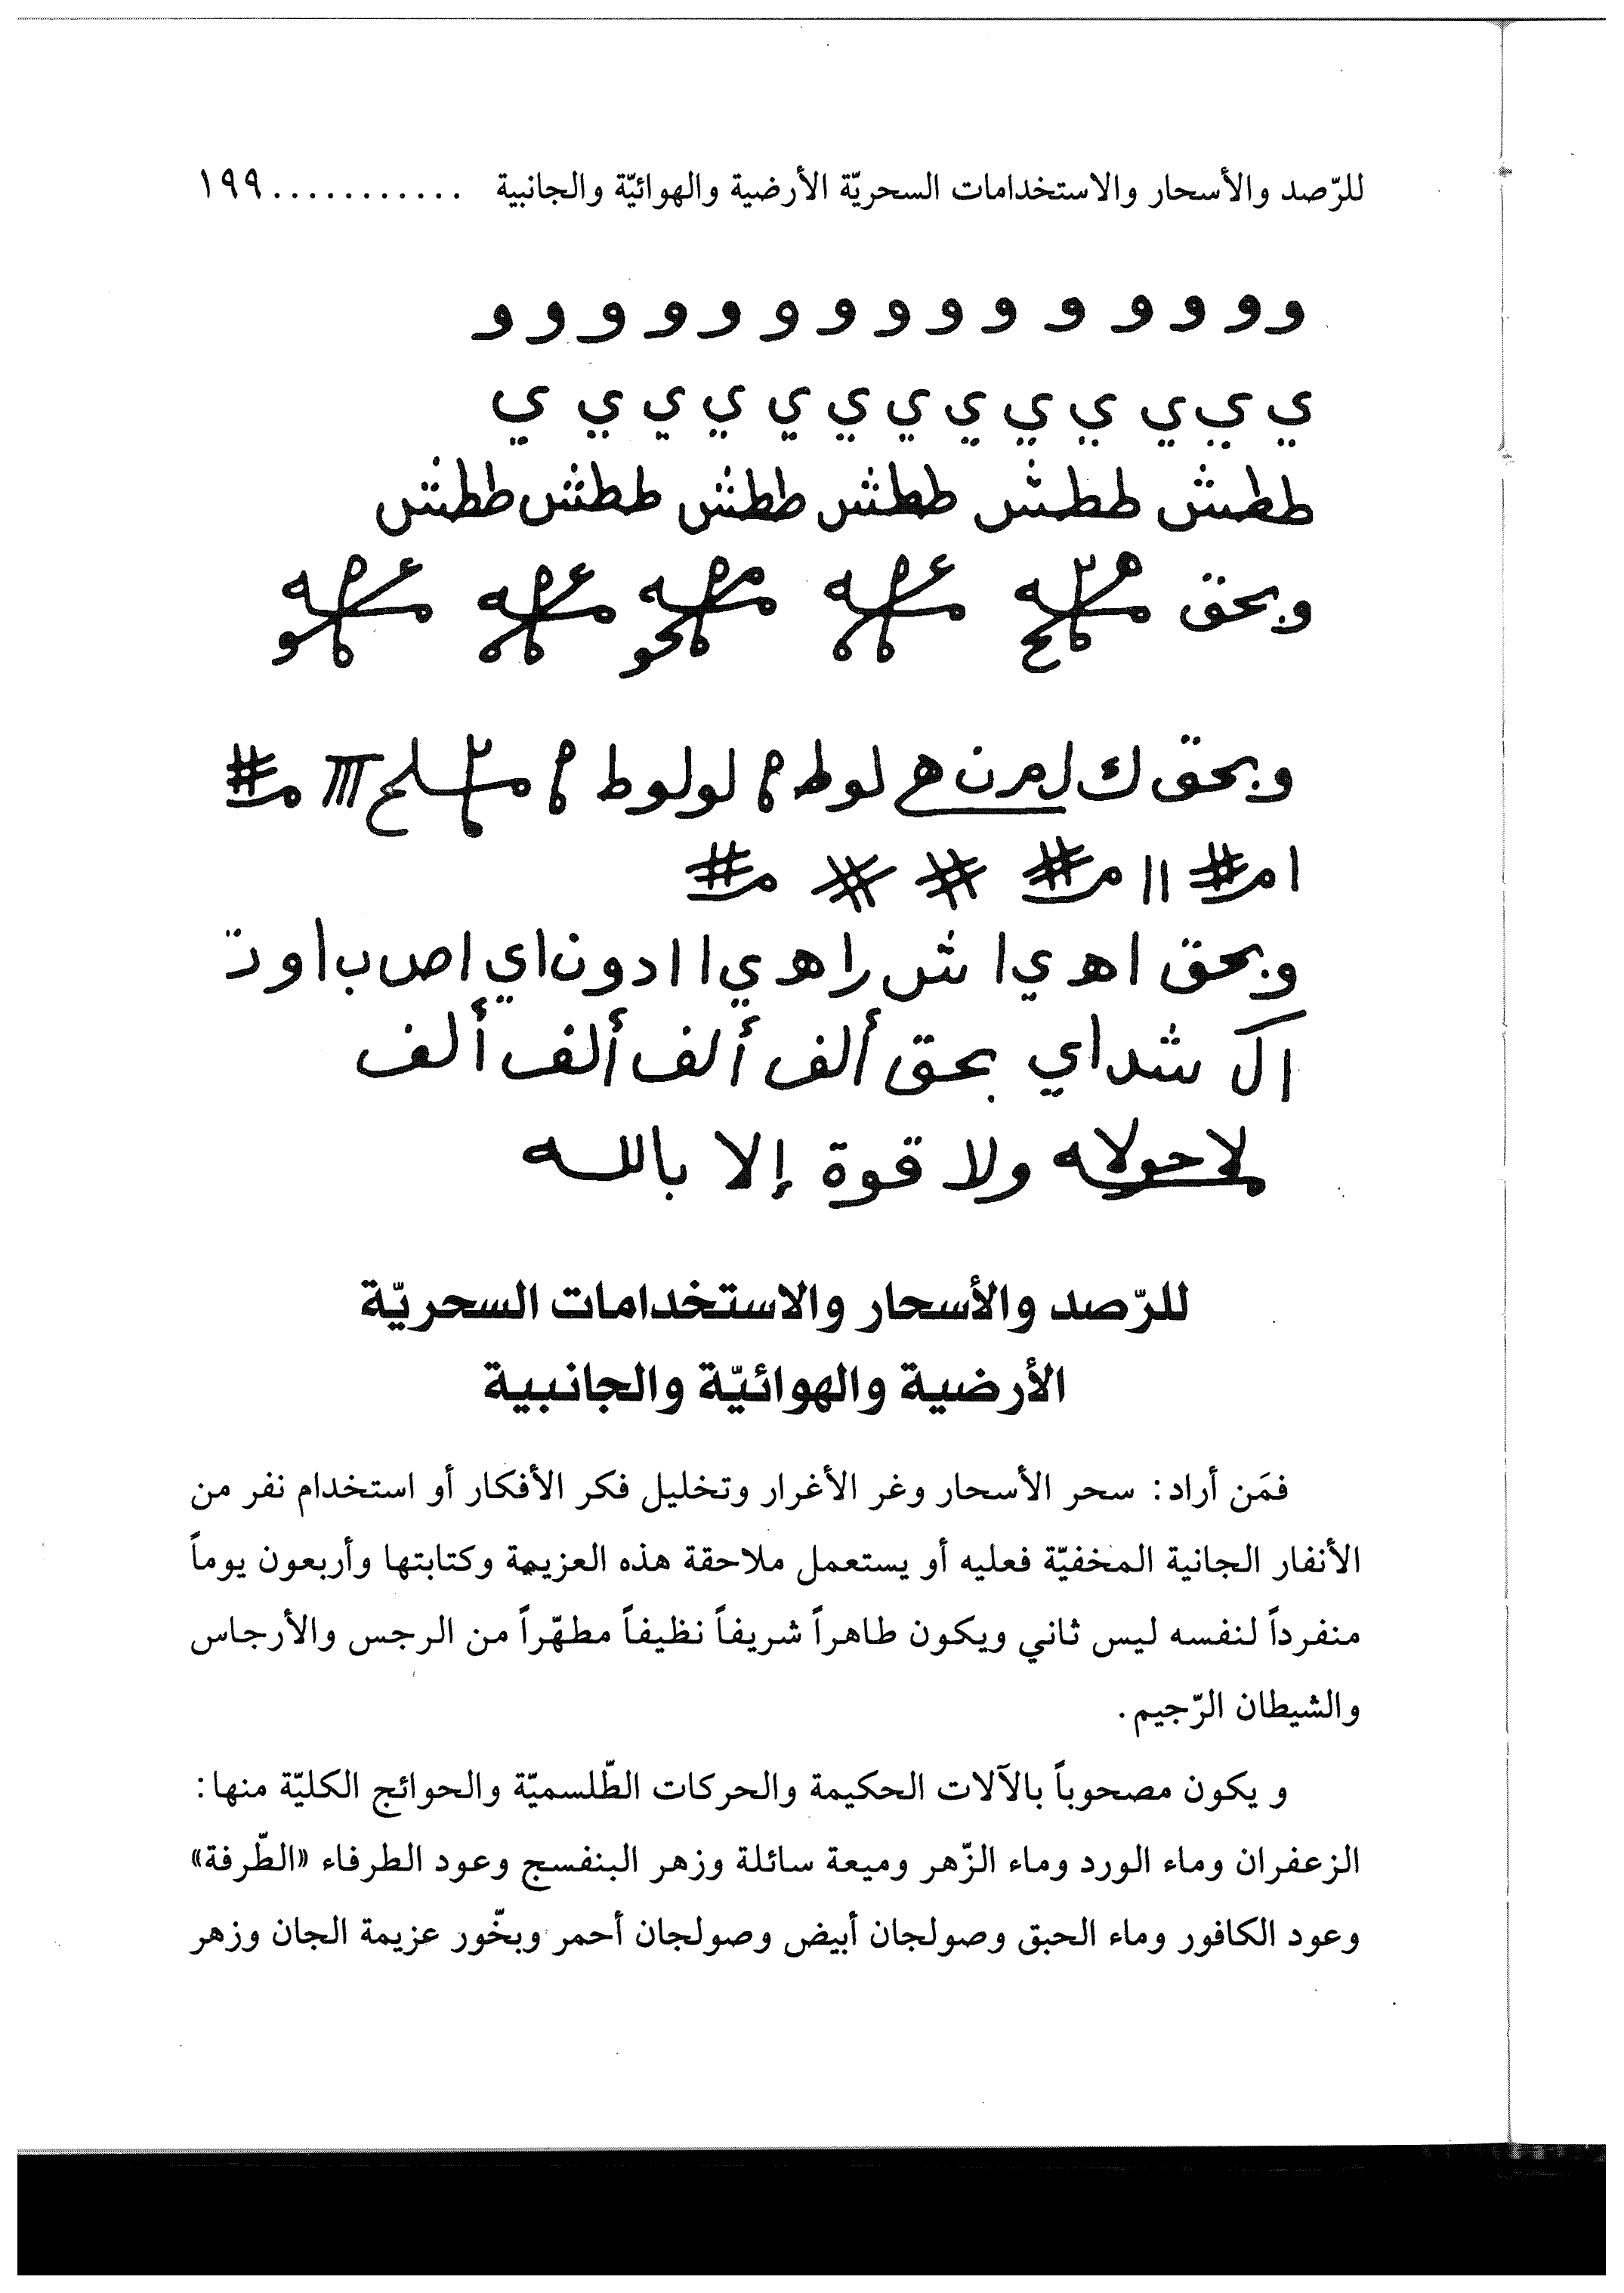 للرّصد والأسحار والاستخدامات السحريّة الأرضية والهوائيّة والجانبية ........... ١٩٩
و و و و و و و و و و و و و و و
ي ي ي ي ي ي ي ي ي ي ي ي ي
ططش ططش ططش ططش ططش ططش
وبحق
وبحق ك لوط لولوط
وبحق ا ه ي ا ش ر ا ه ي ا ا د و ن ا ي ا ص ب ا و ت
ال شداي بحق ألف ألف ألف ألف
ولا قوة إلا بالله
للرّصد والأسحار والاستخدامات السحريّة
الأرضية والهوائيّة والجانبية
فمَن أراد: سحر الأسحار وغر الأغرار وتخليل فكر الأفكار أو استخدام نفر من
الأنفار الجانية المخفيّة فعليه أو يستعمل ملاحقة هذه العزيمة وكتابتها وأربعون يوماً
منفرداً لنفسه ليس ثاني ويكون طاهراً شريفاً نظيفاً مطهّراً من الرجس والأرجاس
والشيطان الرّجيم.
و يكون مصحوباً بالآلات الحكيمة والحركات الطّلسميّة والحوائج الكليّة منها:
الزعفران وماء الورد وماء الزّهر وميعة سائلة وزهر البنفسج وعود الطرفاء «الطّرفة»
وعود الكافور وماء الحبق وصولجان أبيض وصولجان أحمر وبخّور عزيمة الجان وزهر